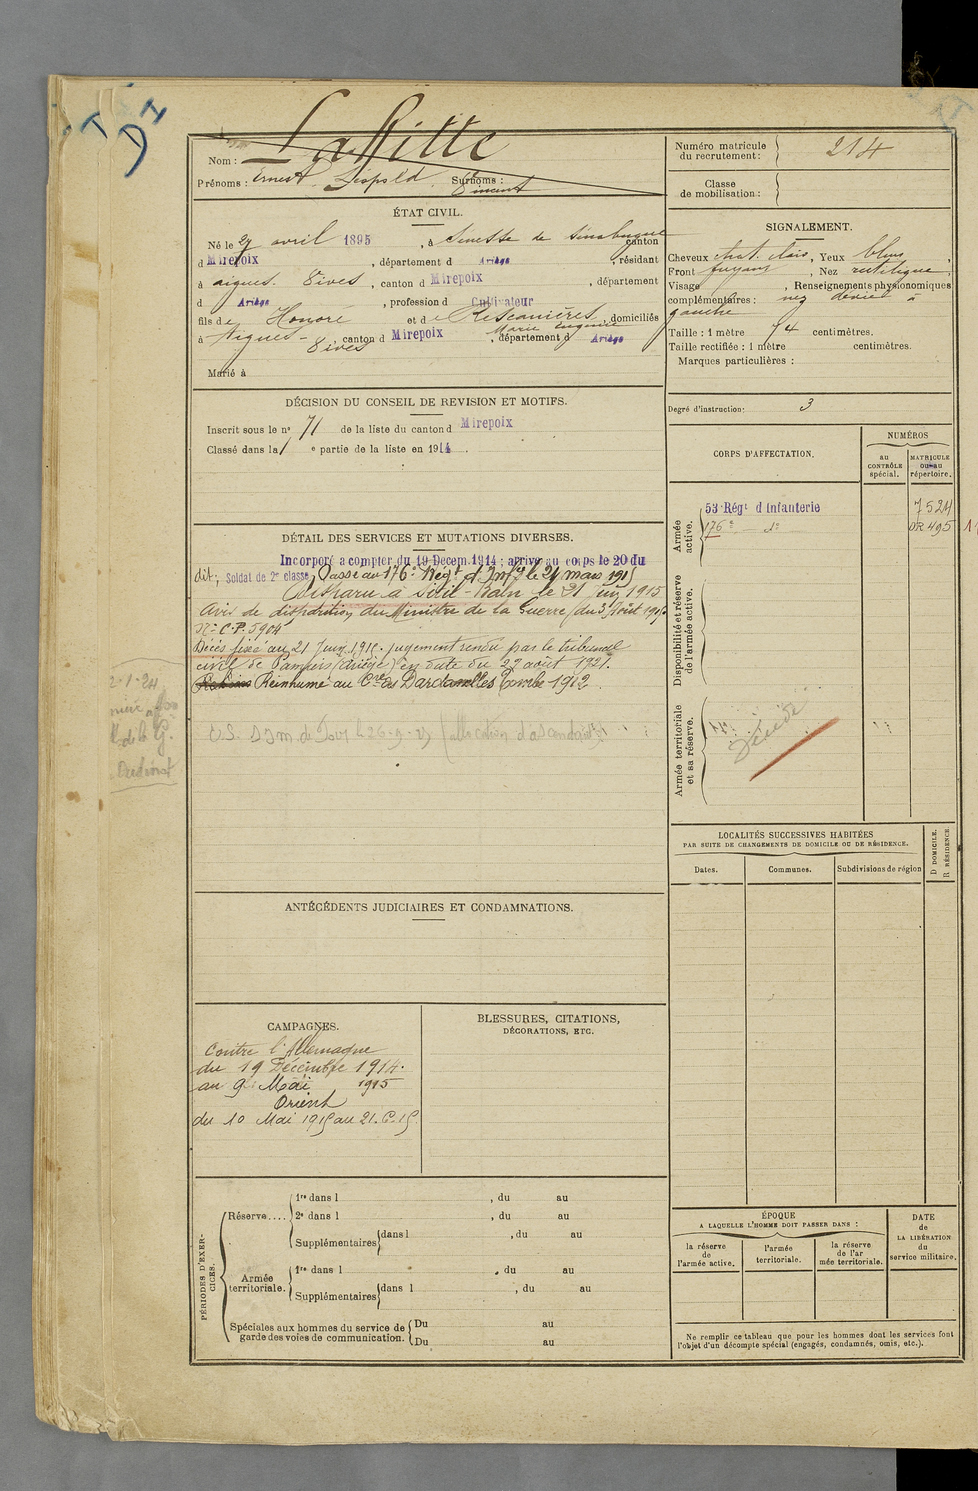 Nom : Lafitte
Prénoms : Ernest Leopold Surnoms : Vincent
Numéro matricule du recrutement : 214
Classe de mobilisation :
ÉTAT CIVIL.
Né le 27 avril 1895, à canton
d Mirepoix, département d Ariège, résidant
à aigues-Vives, canton d Mirepoix, département
d Ariège, profession d Cultivateur
fils de Honoré et de Rescanières Marie, domiciliés
à Aigues-Vives, canton d Mirepoix, département d Ariège
Marié à
SIGNALEMENT.
Cheveux chat. clairs, Yeux bleus,
Front fuyant, Nez rectiligne,
Visage , Renseignements physionomiques
complémentaires : nez dévié à
gauche
Taille : 1 mètre 74 centimètres.
Taille rectifiée : 1 mètre centimètres.
Marques particulières :
Degré d'instruction : 3
DÉCISION DU CONSEIL DE REVISION ET MOTIFS.
Inscrit sous le n° 71 de la liste du canton d Mirepoix
Classé dans la 1e partie de la liste en 1914.
CORPS D'AFFECTATION.
NUMÉROS
au CONTRÔLE spécial.
MATRICULE ou au répertoire.
Armée active.
53 Régt d'Infanterie 7524
176e do DR 495
Disponibilité et réserve de l'armée active.
Armée territoriale et sa réserve.
Décédé
DÉTAIL DES SERVICES ET MUTATIONS DIVERSES.
Incorporé a compter du 19 Decem. 1914 ; arrivé au corps le 20 du
dit, Soldat de 2e classe, Passé au 176e Régt d'Infie le 24 mars 1915
Disparu à le 21 juin 1915
Avis de disparition du Ministre de la Guerre du 31 Août 1915
N° C.P. 5904
Décès fixé au 21 Juin 1915. jugement rendu par le tribunal
civil de Pamiers (Ariège) en date du 29 août 1921.
Réinhumé au Cre des Dardanelles Tombe 1912
(allocation d'ascendant)
2-1-24
LOCALITÉS SUCCESSIVES HABITÉES
PAR SUITE DE CHANGEMENTS DE DOMICILE OU DE RÉSIDENCE.
Dates. Communes. Subdivisions de région
D DOMICILE. R RÉSIDENCE.
ANTÉCÉDENTS JUDICIAIRES ET CONDAMNATIONS.
CAMPAGNES.
Contre l'Allemagne
du 19 Décembre 1914.
au 9 Mai 1915
Orient
du 10 Mai 1915 au 21.6.15.
BLESSURES, CITATIONS,
DÉCORATIONS, ETC.
PÉRIODES D'EXERCICES.
Réserve....
1re dans l , du au
2e dans l , du au
Supplémentaires dans l , du au
Armée territoriale.
1re dans l , du au
Supplémentaires dans l , du au
Spéciales aux hommes du service de garde des voies de communication.
Du au
Du au
ÉPOQUE
A LAQUELLE L'HOMME DOIT PASSER DANS :
la réserve de l'armée active.
l'armée territoriale.
la réserve de l'armée territoriale.
DATE de LA LIBÉRATION du service militaire.
Ne remplir ce tableau que pour les hommes dont les services font
l'objet d'un décompte spécial (engagés, condamnés, omis, etc.).